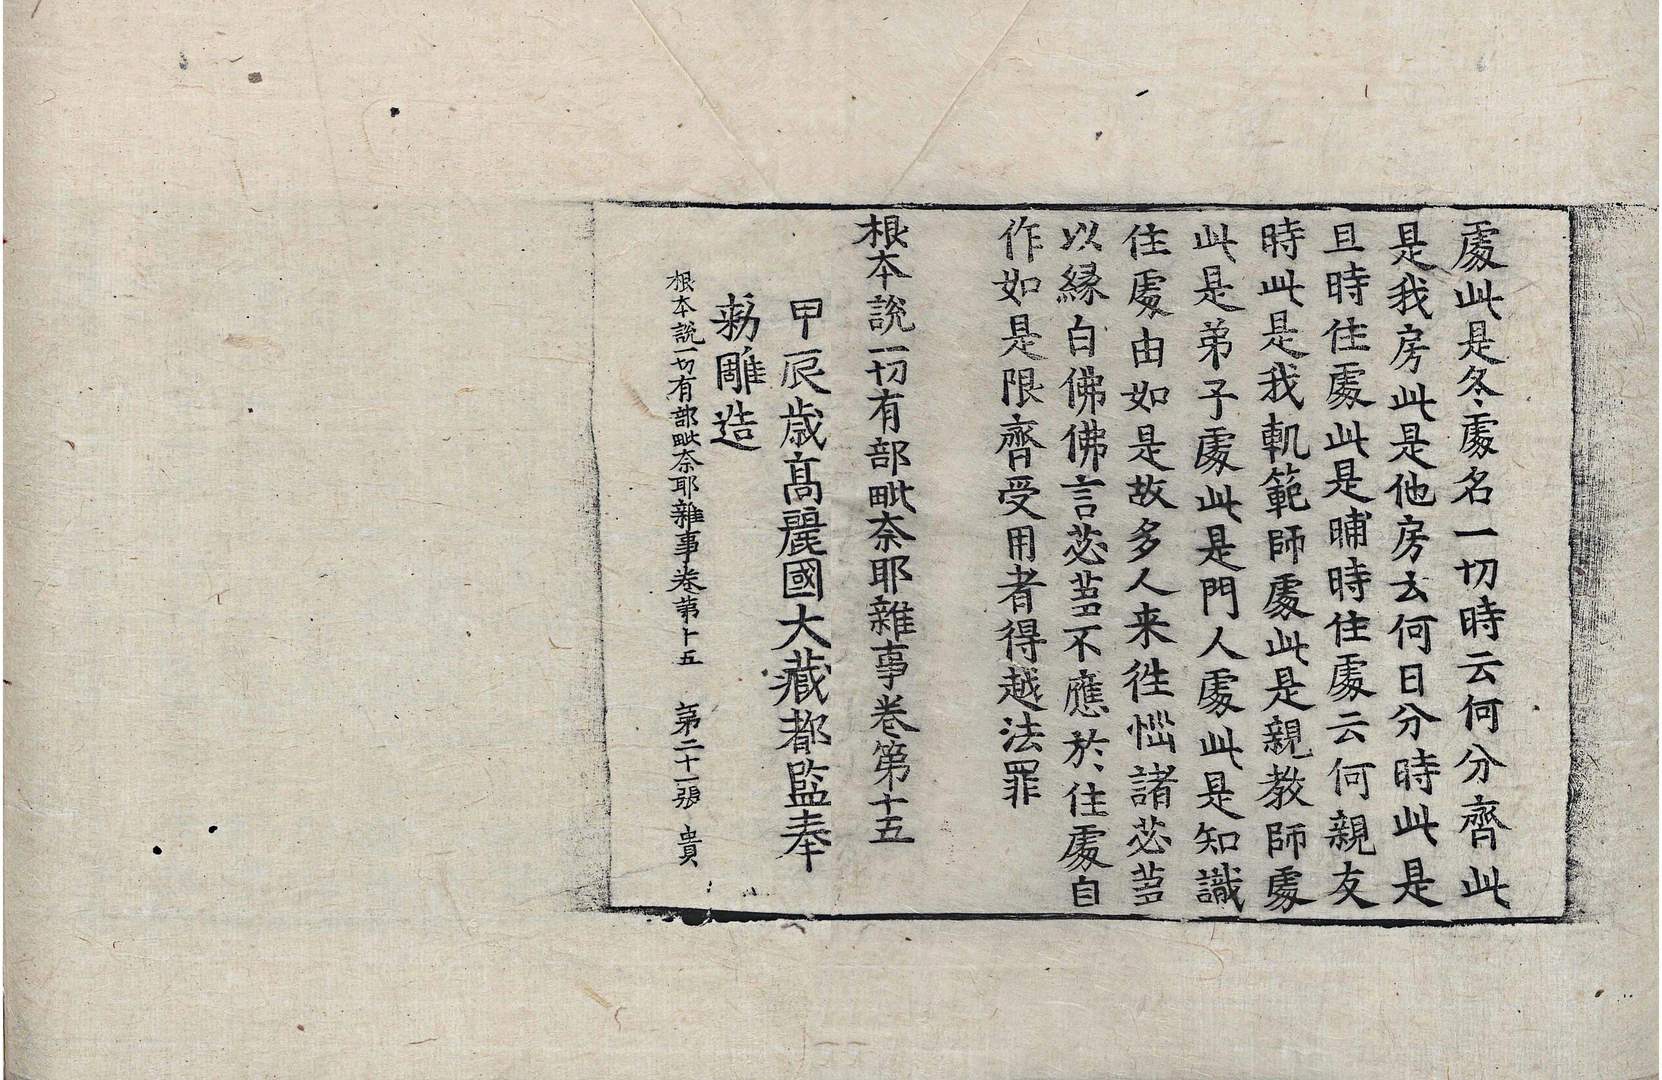 處此是冬處名一切時云何分齊此
是我房此是他房云何日分時此是
旦時住處此是晡時住處云何親友
時此是我軌範師處此是親教師處
此是弟子處此是門人處此是知識
住處由如是故多人来往惱諸苾蒭
以縁白佛佛言苾蒭不應於住處自
作如是限齊受用者得越法罪
根本說一切有部毗奈耶雜事卷第十五
甲辰歲髙麗國大藏都監奉
勑雕造
根本說一切有部毗奈耶雜事卷第十五 第二十一張 貴